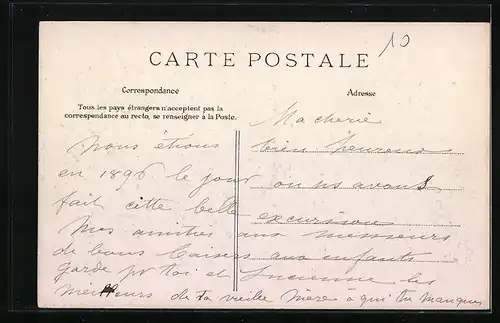 10
CARTE POSTALE
Correspondance
Adresse
Tous les pays étrangers n'acceptent pas la
correspondance au recto, se renseigner à la Poste.
Ma cherie
Nous étions bien heureux
en 1896 le jour ou ns avons
fait cette belle excursion
Mes amitiés aux messieurs
de bons baisers aux enfants
garde pr toi et Lucienne les
meilleurs de ta vieille mère à qui tu manques